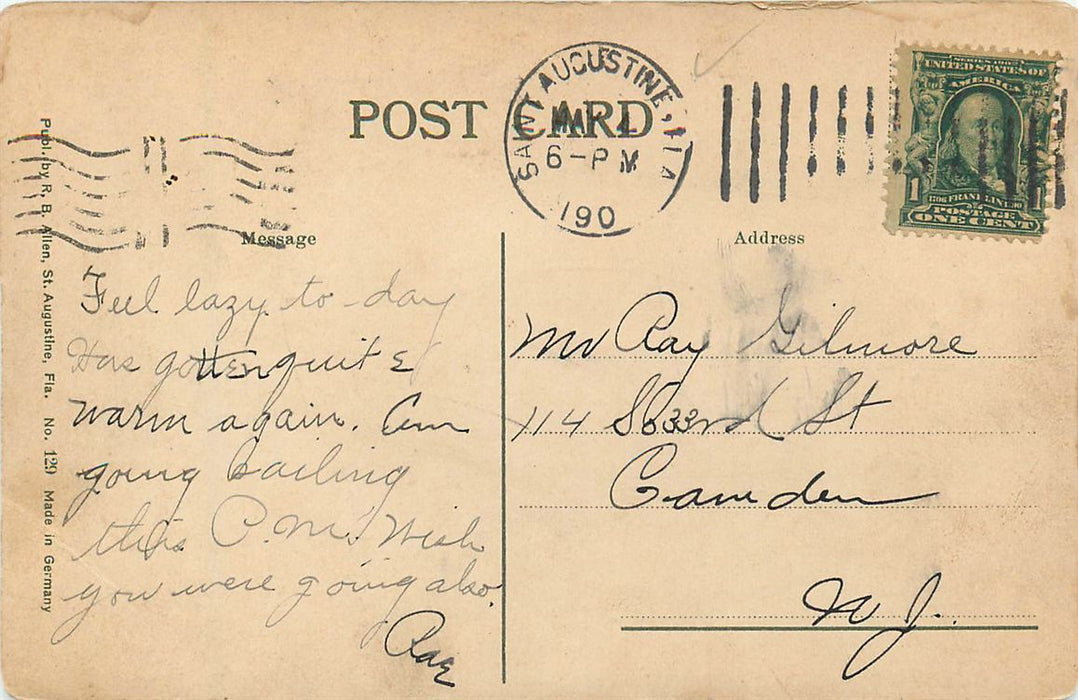 POST CARD
SAINT AUGUSTINE, FLA
MAY 4
6-PM
190
UNITED STATES OF
AMERICA
1 1
FRANKLIN
POSTAGE
ONE CENT
Publ. by R. B. Allen, St. Augustine, Fla. No. 129 Made in Germany
Message
Feel lazy to-day
Has gotten quite
warm again. Am
going sailing
this P.M. Wish
you were going also.
Rae
Address
Mr Ray Gilmore
114 So 33rd St
Camden
N J.